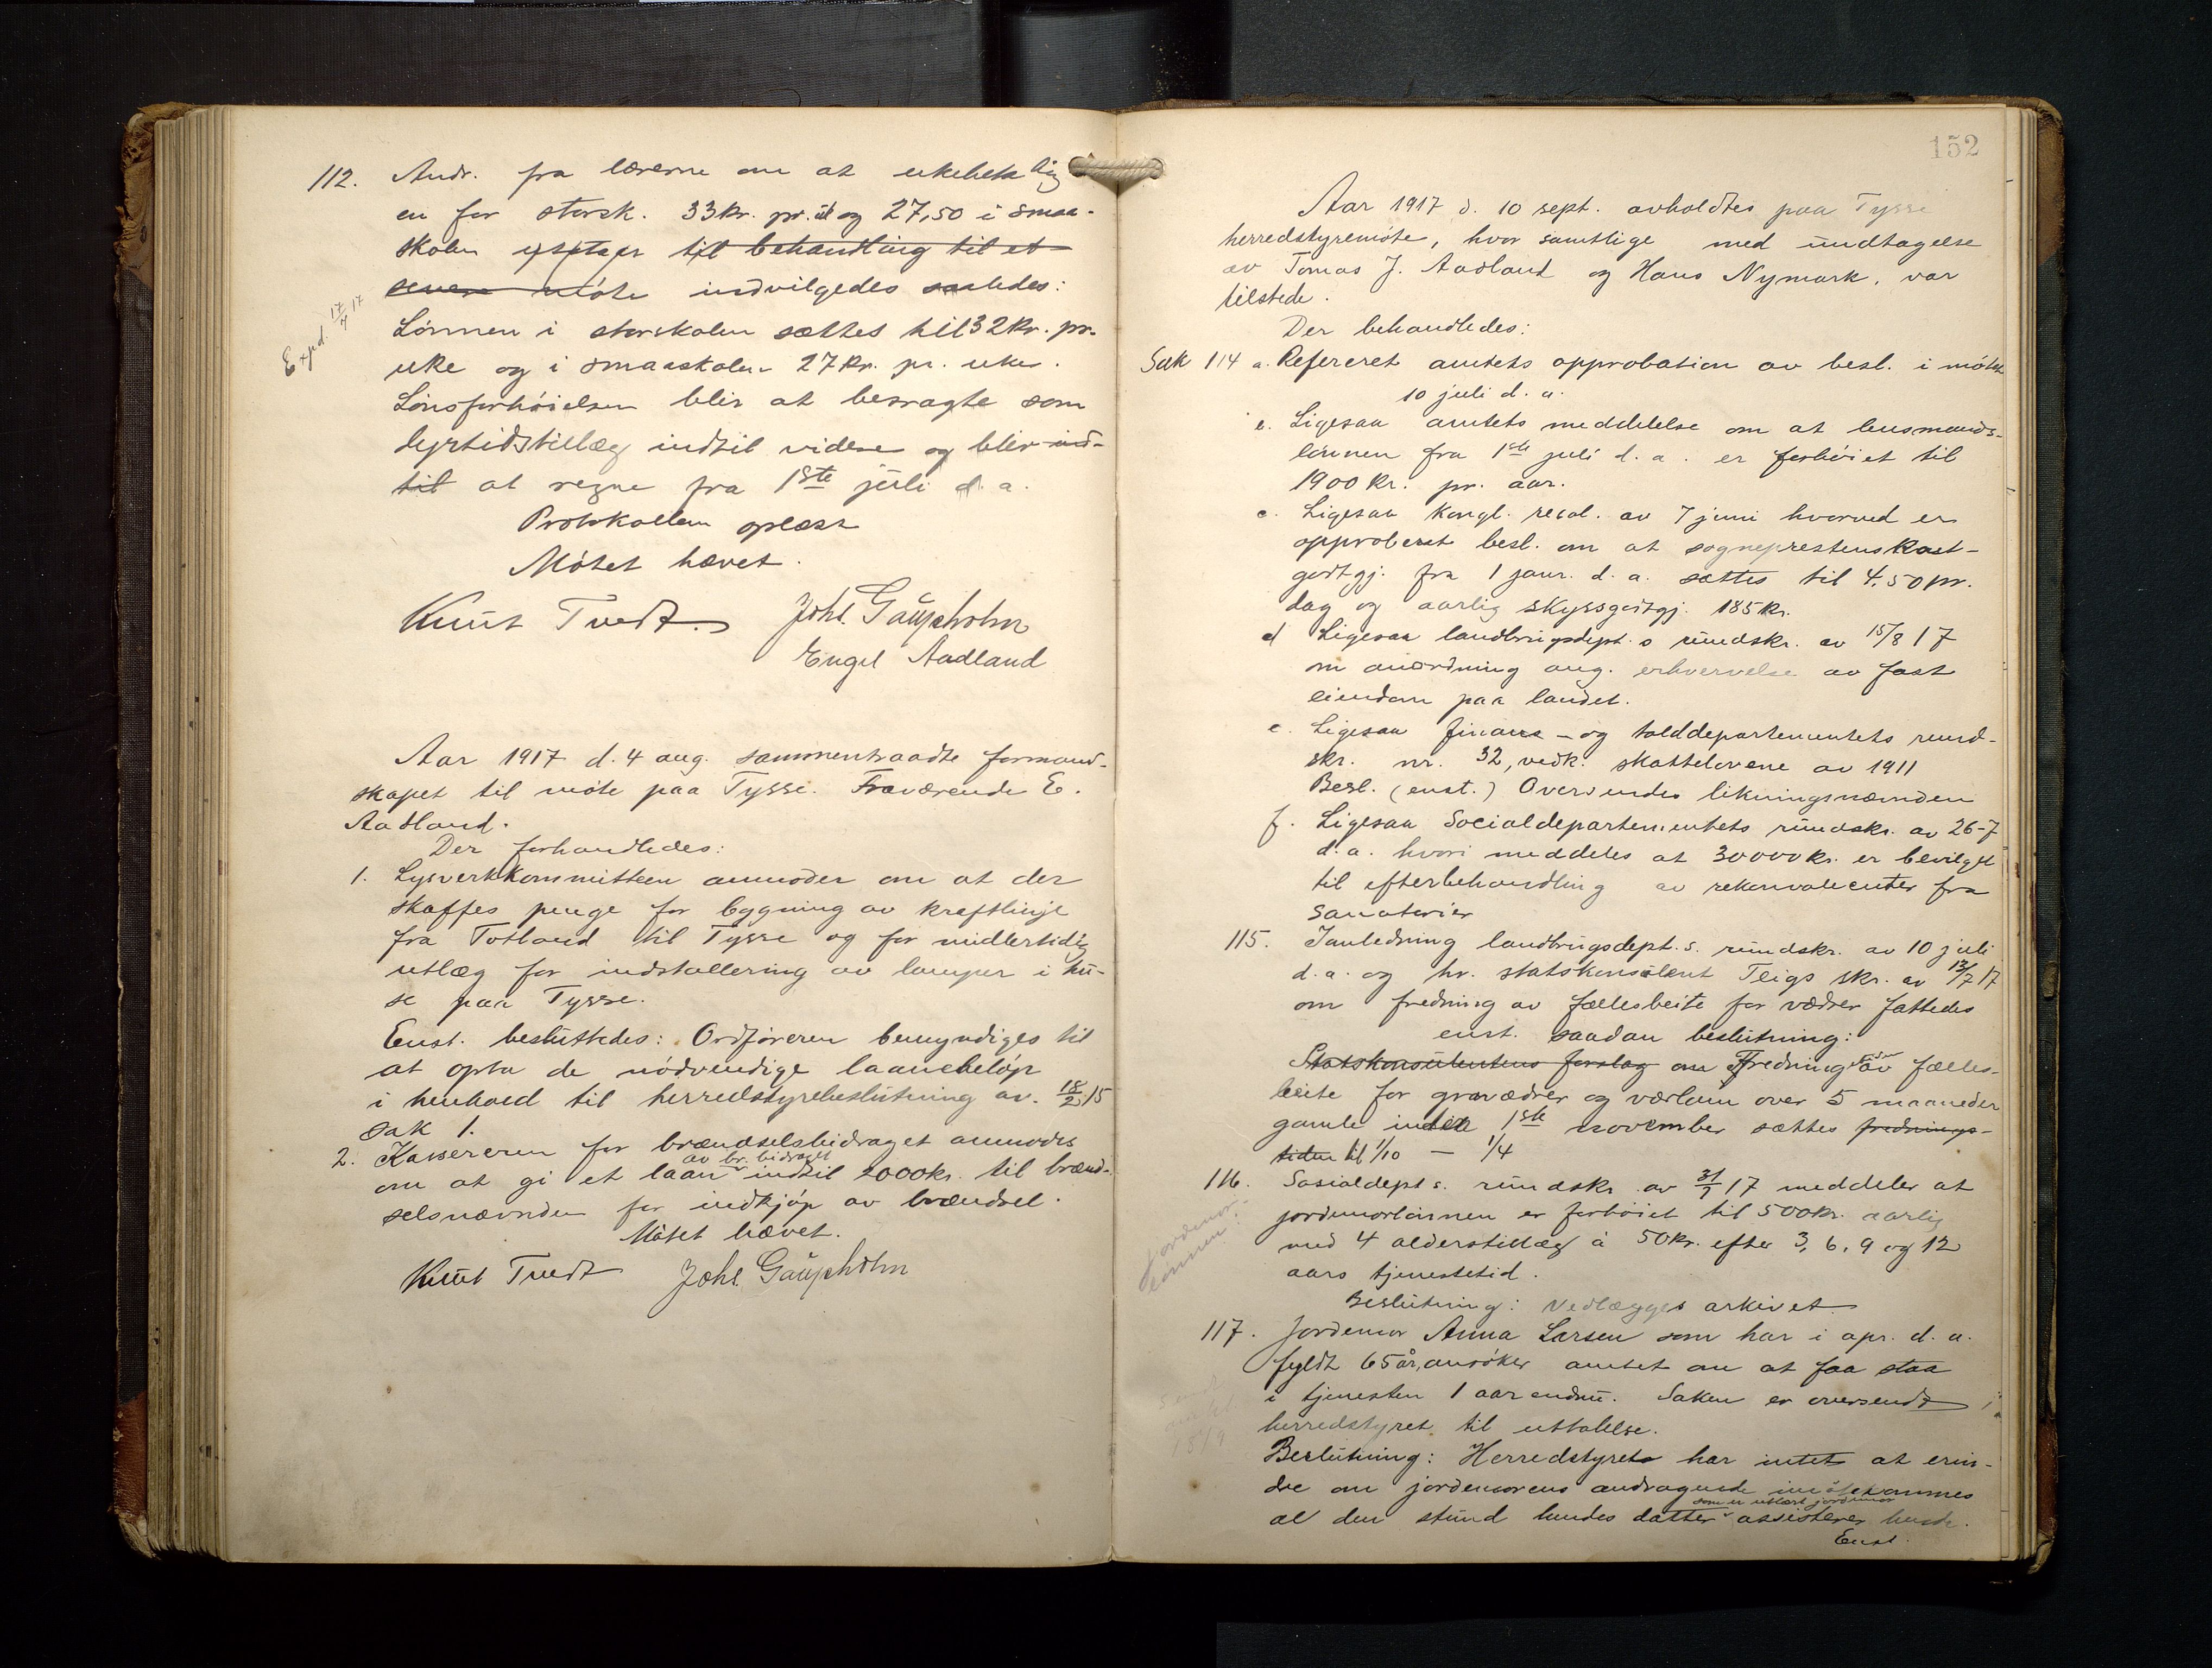 112. Andr. fra lærerne om at ukebetaling
en for storsk. 33 kr. pr. u og 27,50 i smaa-
skolen utsettes til behandling til et
senere møte indvilgedes saaledes:
Expd. 17/7 17
Lönnen i storskolen sættes til 32 kr. pr.
uke og i smaaskolen 27 kr. pr. uke.
Lönsforhöielsen blir at betragte som
dyrtidstillæg indtil videre og blir ind-
til at regne fra 1ste juli d. a.
Protokollen oplæst
Mötet hævet.
Knut Tvedt. Johs. Gaupholm
Engel Aadland
Aar 1917 d. 4 aug. sammentraadte formand-
skapet til möte paa Tysse. Fraværende E.
Aadland.
Der forhandledes:
1. Lysverkkommitteen anmoder om at der
skaffes penge for bygning av kraftlinje
fra Totland til Tysse og for midlertidig
utlæg for indstallering av lamper i hu-
se paa Tysse.
Enst. besluttedes: Ordföreren bemyndiges til
at opta de nödvendige laanebelöp
i henhold til herredsstyrebeslutning av. 18/2 15
sak 1.
2. Kassereren for brændselsbidraget anmodes
av br. bidraget
om at gi et laan indtil 2000 kr. til brænd-
selsnævnden for indkjöp av brændsel.
Mötet hævet.
Knut Tvedt Johs. Gaupholm
152
Aar 1917 d. 10 sept. avholdtes paa Tysse
herredstyremöte, hvor samtlige med undtagelse
av Tomas J. Aadland og Hans Nymark, var
tilstede.
Der behandledes:
Sak 114 a. Refereret amtets approbation av besl. i mötet
10 juli d. a.
Ligesaa amtets meddelelse om at lensmands-
lönnen fra 1ste juli d. a. er forhöiet til
1900 kr. pr. aar.
c. Ligesaa kongl. resol. av 7 juni hvorved er
approberet besl. om at sogneprestens kost-
godtgj. fra 1 janr. d. a. sættes til 4,50 pr.
dag og aarlig skyssgodtgj. 185 kr.
d Ligesaa landbrugsdept. s rundskr. av 15/8 17
om anordning ang. erhvervelse av fast
eiendom paa landet.
e. Ligesaa finans- og tolddepartementets rund-
skr. nr. 32, vedk. skattelovene av 1911
Besl. (enst.) Oversendes likningsnævnden
f. Ligesaa Socialdepartementets rundskr. av 26-7
d. a. hvori meddeles at 30000 kr. er bevilget
til efterbehandling av rekonvalecenter fra
sanatorier
115. I anledning landbrugsdept. s. rundskr. av 10 juli
d. a. og hr. statskonsulent Teigs skr. av 13/7 17
om fredning av fællesbeite for vædrer fattedes
enst. saadan beslutning:
Statskonsulentens forslag om Fredning av fælles-
beite for gravædrer og værlam over 5 maaneder
gamle indtil 1ste november sættes frednings-
tiden til 1/10 — 1/4
116. Sosialdept s. rundskr. av 31/7 17 meddeler at
jordemorlönnen er forhöiet til 500 kr. aarlig
Jordemor-
lönnen.
med 4 alderstillæg à 50 kr. efter 3, 6, 9 og 12
aars tjenestetid.
Beslutning: Vedlægges arkivet
117. Jordemor Anna Larsen som har i apr. d. a.
fyldt 65 år, ansöker amtet om at faa staa
i tjenesten 1 aar endnu. Saken er oversendt
herredstyret til uttalelse.
Beslutning: Herredstyret har intet at erin-
dre om jordemorens andragende imötekommes
som er utlært jordemor
al den stund hendes datter assisterer hende.
Enst.